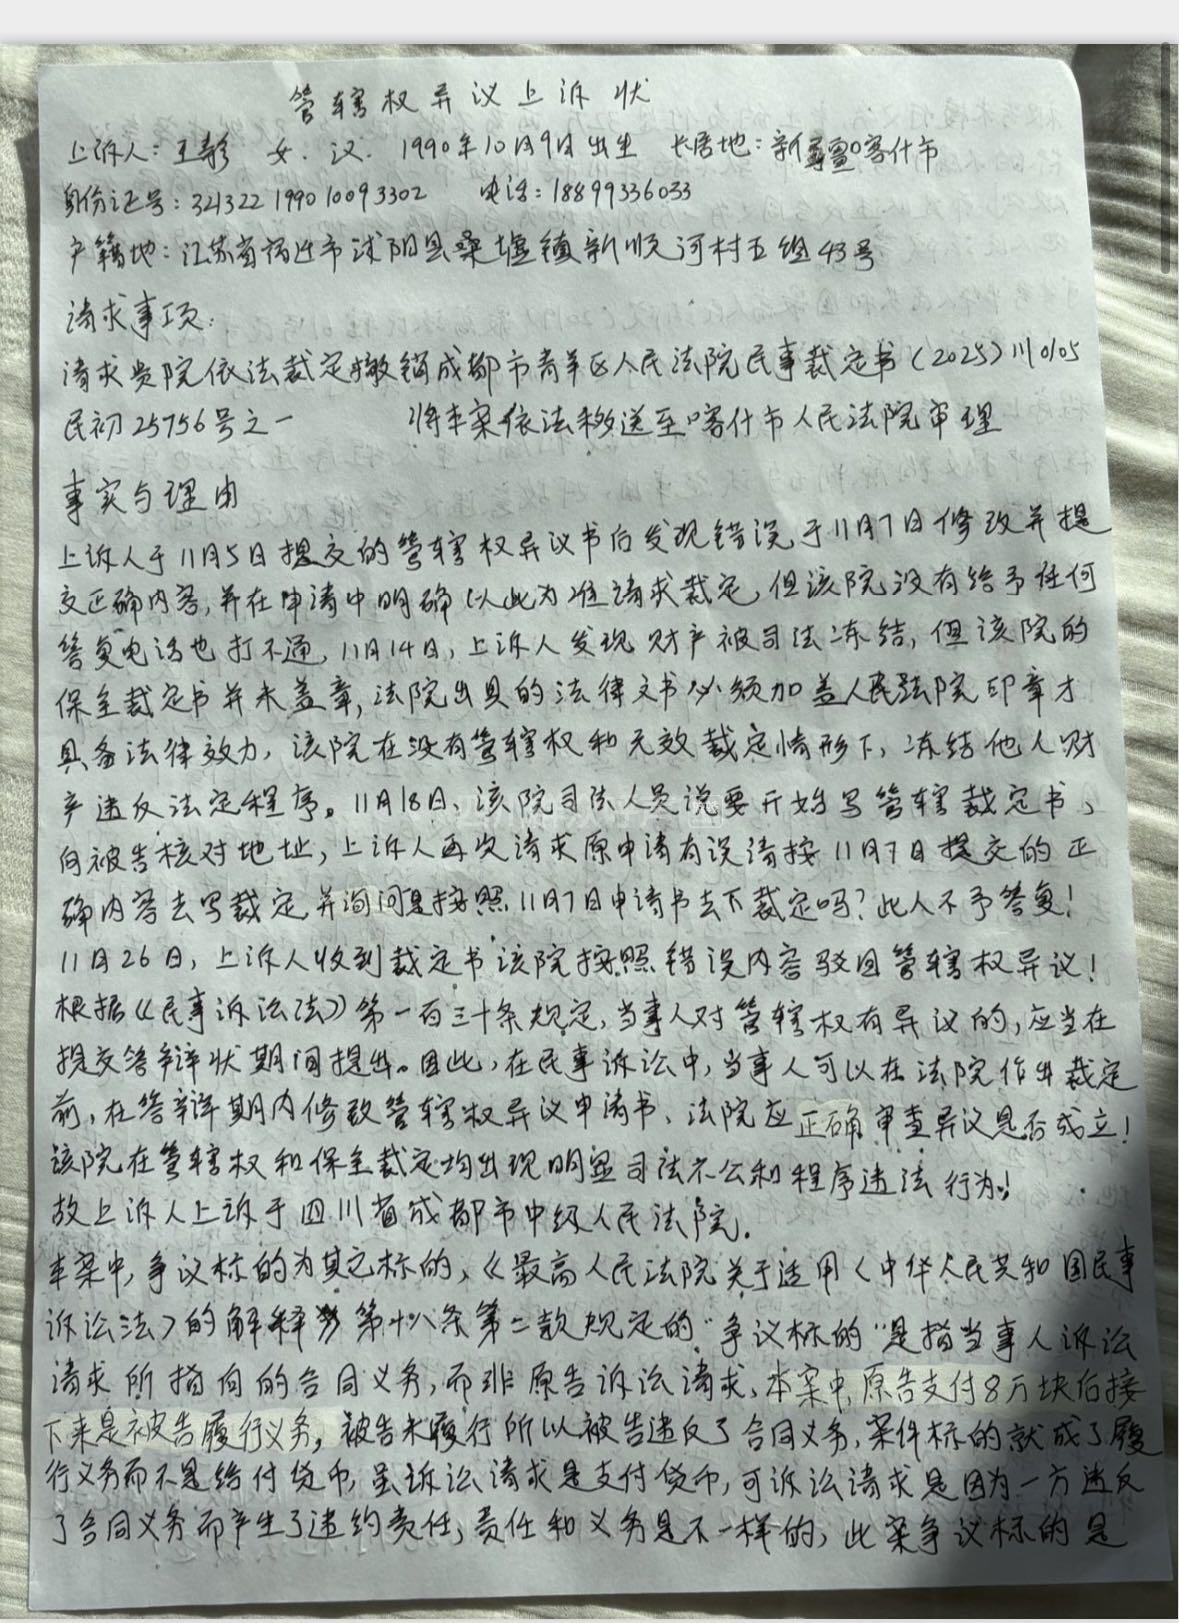 管辖权异议上诉状
上诉人：王静 女．汉．1990年10月9日出生 长居地：新疆喀什市
身份证号：321322199010093302 电话：18899336033
户籍地：江苏省宿迁市沭阳县桑墟镇新顺河村五组43号
请求事项：
请求贵院依法裁定撤销成都市青羊区人民法院民事裁定书（2025）川0105
民初25756号之一 将本案依法移送至喀什市人民法院审理
事实与理由
上诉人于11月5日提交的管辖权异议书后发现错误，于11月7日修改并提
交正确内容，并在申请中明确以此为准请求裁定，但该院没有给予任何
答复电话也打不通，11月14日，上诉人发现财产被司法冻结，但该院的
保全裁定书并未盖章，法院出具的法律文书必须加盖人民法院印章才
具备法律效力，该院在没有管辖权和无效裁定情形下，冻结他人财
产违反法定程序。11月18日、该院司法人员说要开始写管辖裁定书、
向被告核对地址，上诉人再次请求原申请有误请按11月7日提交的正
确内容去写裁定并询问是按照11月7日申请书去下裁定吗？此人不予答复！
11月26日，上诉人收到裁定书该院按照错误内容驳回管辖权异议！
根据《民事诉讼法》第一百三十条规定，当事人对管辖权有异议的，应当在
提交答辩状期间提出。因此，在民事诉讼中，当事人可以在法院作出裁定
前，在答辩期内修改管辖权异议申请书、法院应正确审查异议是否成立！
该院在管辖权和保全裁定均出现明显司法不公和程序违法行为！
故上诉人上诉于四川省成都市中级人民法院．
本案中，争议标的为其它标的，《最高人民法院关于适用〈中华人民共和国民事
诉讼法〉的解释》第十八条第二款规定的“争议标的”是指当事人诉讼
请求所指向的合同义务，而非原告诉讼请求，本案中，原告支付8万块后接
下来是被告履行义务，被告未履行所以被告违反了合同义务，案件标的就成了履
行义务而不是给付货币，虽诉讼请求是支付货币，可诉讼请求是因为一方违反
了合同义务而产生了违约责任，责任和义务是不一样的，此案争议标的是